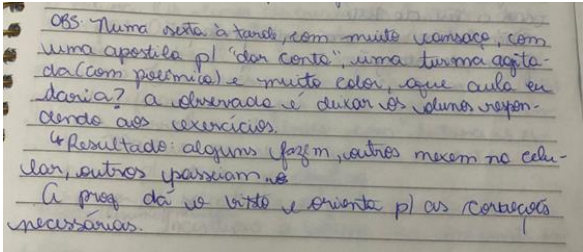 OBS: Numa sexta à tarde, com muito cansaço, com
uma apostila p/ "dar conta", uma turma agita-
da (com polêmica) e muito calor, que aula eu
daria? A observada é deixar os alunos respon-
dendo aos exercícios.
↳ Resultado: alguns fazem, outros mexem no celu-
lar, outros passeiam.
A prof dá o visto e orienta p/ as correções
necessárias.